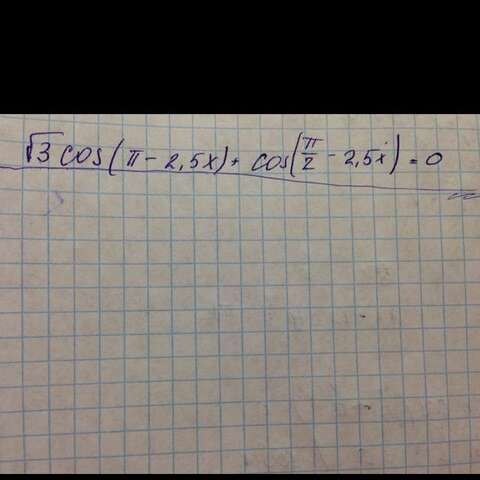 √3 cos(π - 2,5x) + cos(π/2 - 2,5x) = 0